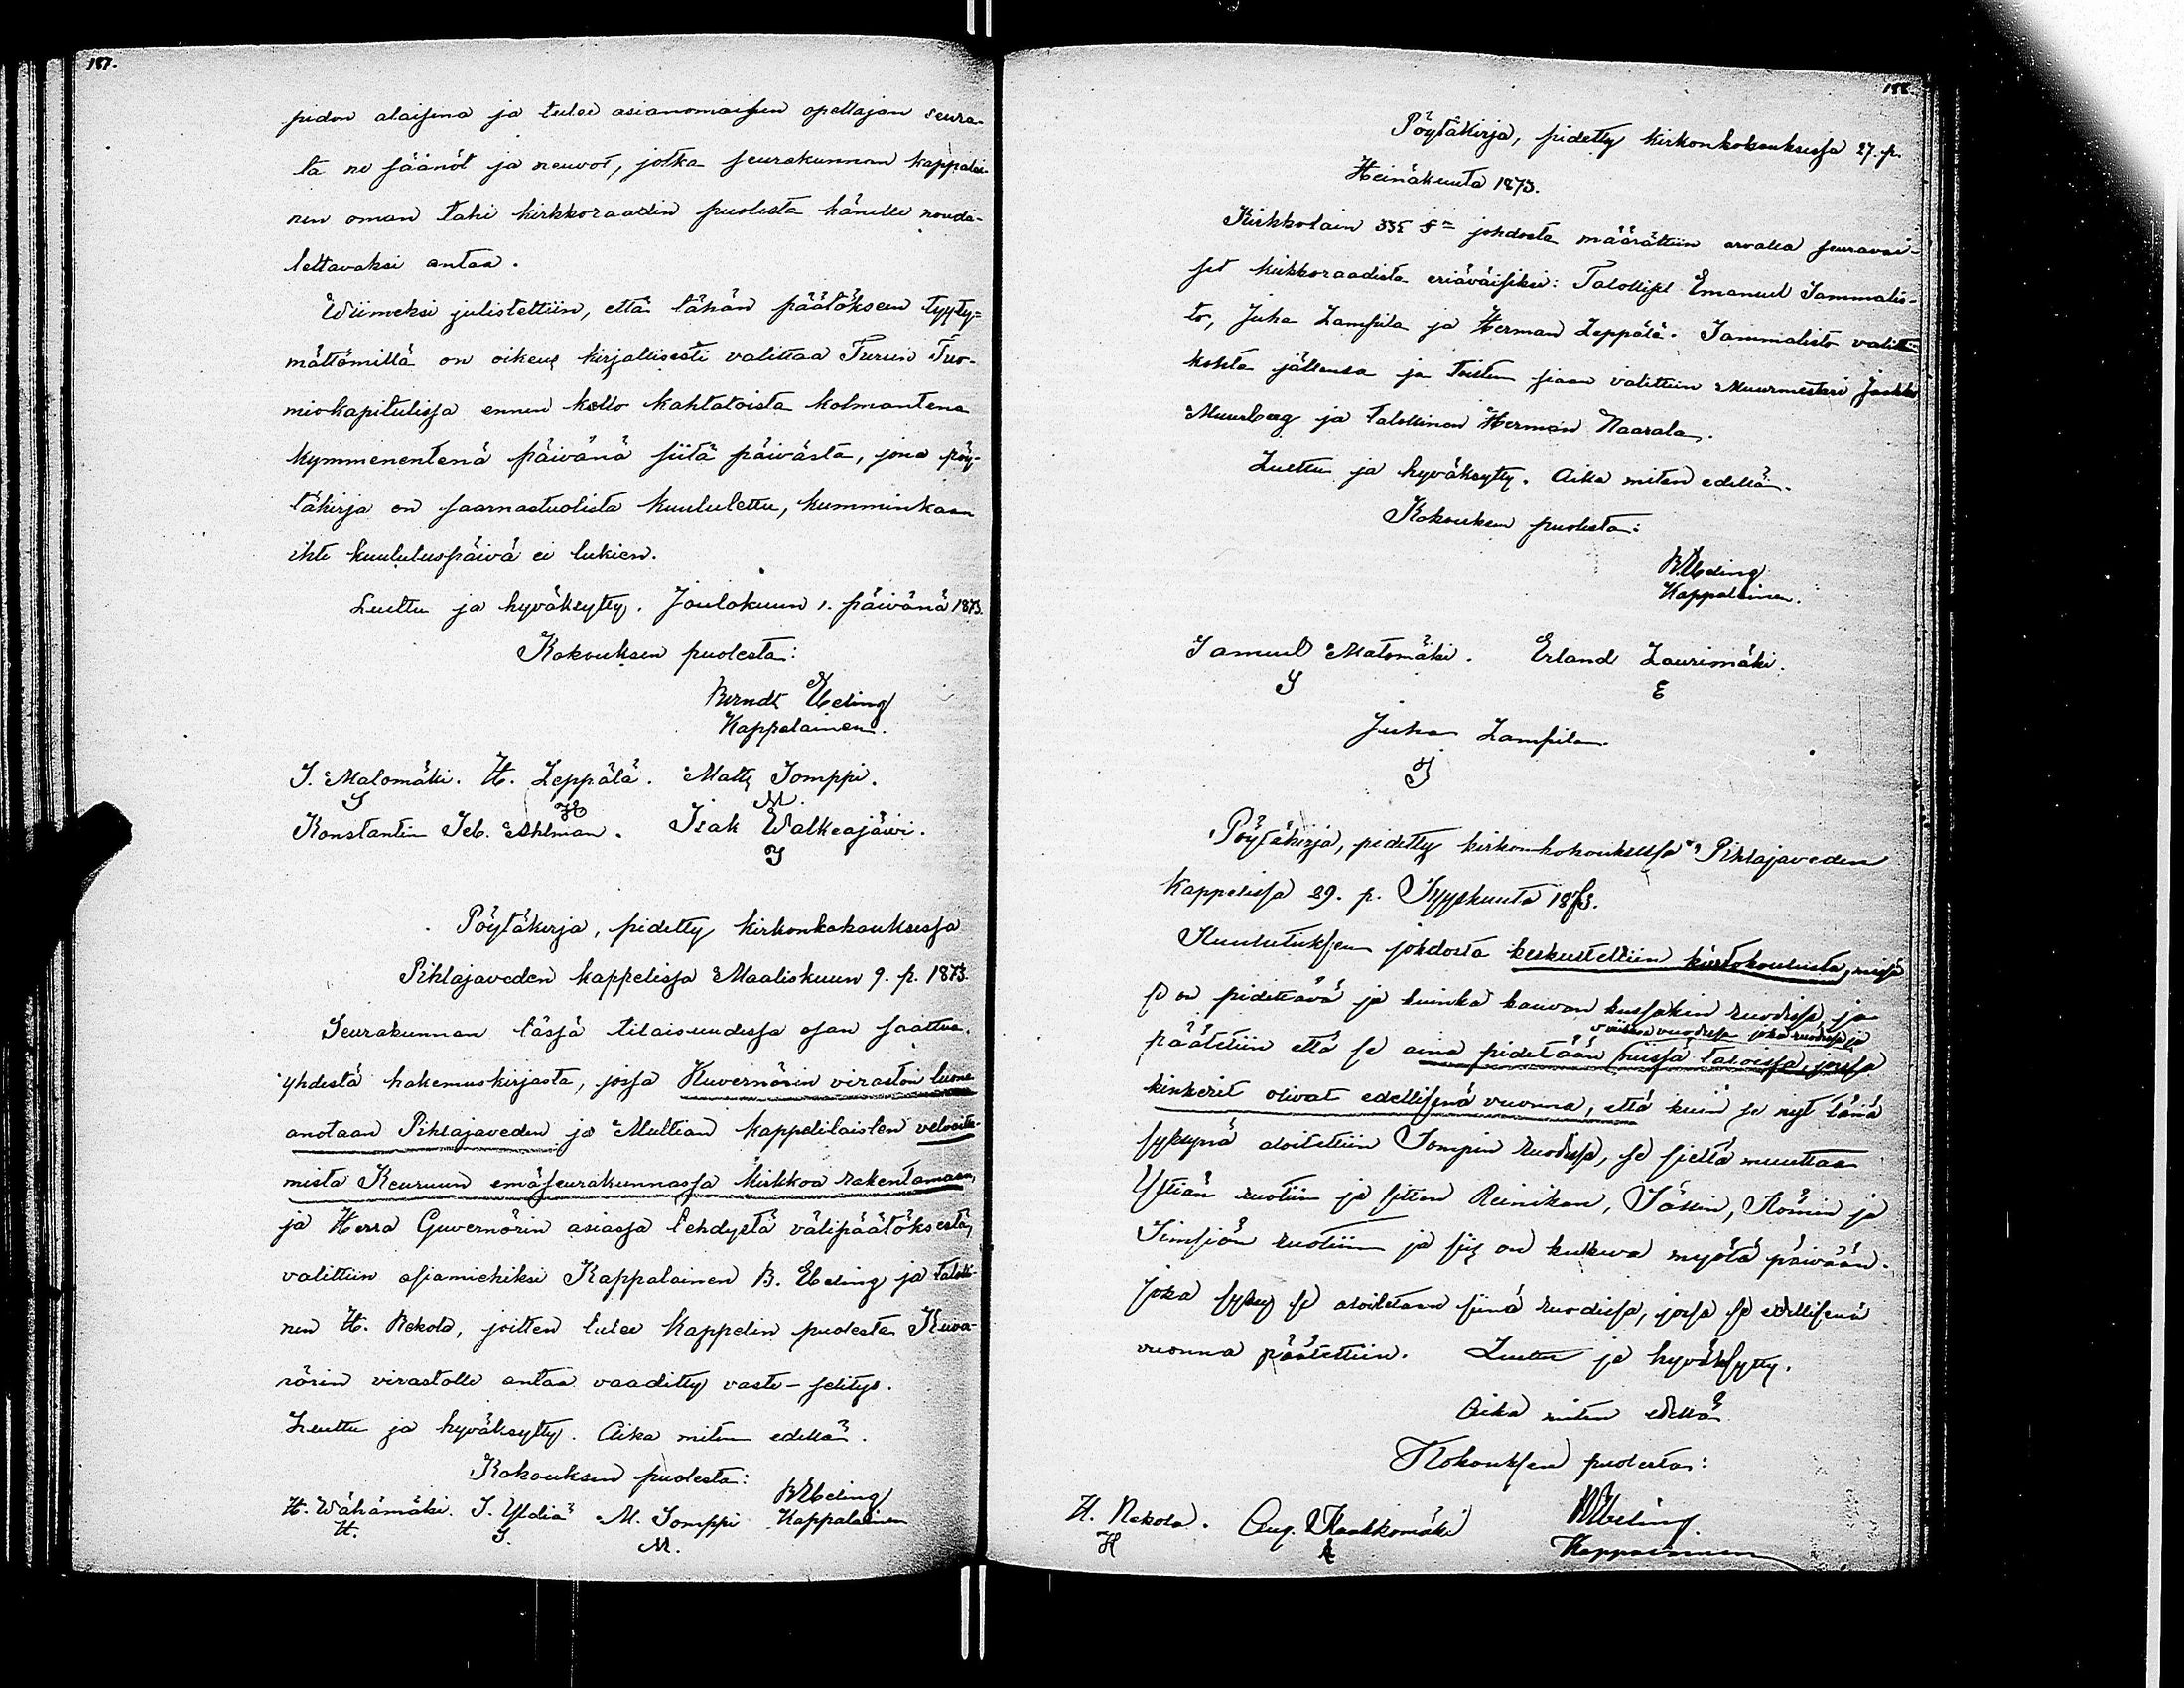 187.
pidon alaisena ja tulee asianomaisen opettajan seura-
ta ne säänöt ja neuvot, jotka seurakunnan kappalai-
nen oman tahi kirkkoraadin puolesta hänelle nouda-
tettavaksi antaa.
Wiimeksi julistettiin, että tähän päätökseen tyyty-
mättömillä on oikeus kirjallisesti valittaa Turun Tuo-
miokapitulissa ennen kello kahtatoista kolmantena
kymmenentenä päivänä siitä päivästä, jona pöy-
täkirja on saarnastuolista kuulutettu, kumminkaan
ihte kuulutuspäivä ei lukien.
Luettu ja hyväksytty. Joulukuun 1. päivänä 1873.
Kokouksen puolesta:
Berndt Ebeling
Kappalainen.
S. Matomäki. H. Leppälä. Matts Somppi.
S H M.
Konstantin Seb. Ahlman. Isak Walkeajärvi.
I
Pöytäkirja, pidetty kirkonkokouksessa
Pihlajaveden kappelissa Maaliskuun 9. p. 1873.
Seurakunnan tässä tilaisuudessa osan saattua
yhdestä hakemuskirjasta, jossa Kuvernörin viraston luona
anotaan Pihlajaveden ja Multian kappelilaisten velvoitta-
mista Keuruun emäseurakunnassa kirkkoa rakentamaan,
ja Herra Guvernörin asiassa tehdystä välipäätöksestä,
valittiin asiamiehiksi Kappalainen B. Ebeling ja taloli-
nen H. Rekola, joitten tulee kappelin puolesta Kuver-
nörin virastolle antaa vaaditty vasta-selitys.
Luettu ja hyväksytty. Aika miten edellä.
Kokouksen puolesta:
BEbeling
H. Wähämäki. S. Yldiä M. Somppi Kappalainen
H. S. M.
188.
Pöytäkirja, pidetty kirkonkokouksessa 27. p.
Heinäkuuta 1873.
Kirkkolain johdosta määrättiin arvalla seuraavai-
set kirkkoraadista eriäväisiksi: Talolliset Emanuel Sammalis-
to, Juha Lampila ja Herman Leppälä. Sammalisto valittiin
kohta jällensä ja toisten siaan valittiin Muurmestari Jaakko
Muurberg ja talollinen Herman Naarala.
Luettu ja hyväksytty. Aika miten edellä.
Kokouksen puolesta:
BEbeling
Kappalainen.
Samuel Matomäki. Erland Laurimäki.
S E
Juha Lampila
J
Pöytäkirja, pidetty kirkonkokouksessa Pihlajaveden
Kappelissa 29. p. Syyskuuta 1873.
Kuulutuksen johdosta keskusteltiin kiertokoulusta, missä
se on pidettävä ja kuinka kauvan kussakin ruodissa ja
viikkoa vuodessa joka ruodissa ja
päätettiin että se aina pidetään niissä taloissa, joissa
kinkerit olivat edellisenä vuonna, että kuin se nyt tänä
syksynä aloitettiin Sompin ruodissa, se sieltä muuttaa
Yliän ruotiin ja sitten Reinikan, Kömin ja
Simsiön ruotiin ja siis on kulkeva myötä päivään.
Joka syksy se aloitetaan siinä ruodissa, jossa se edellisenä
vuonna päätettiin. Luettu ja hyväksytty.
Aika miten edellä
Kokouksen puolesta:
H. Rekola. Aug. Kaakkomäki BEbeling.
H A Kappalainen